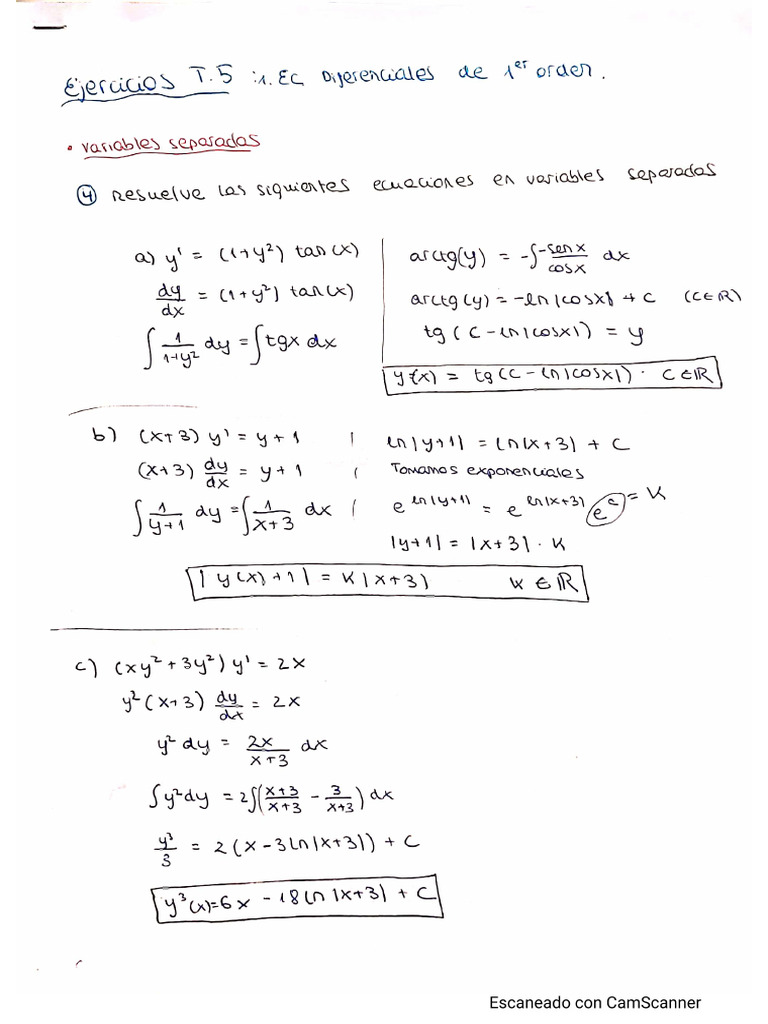 Ejercicios T.5 : 1. EC Diferenciales de 1er orden.
• variables separadas
④ Resuelve las siguientes ecuaciones en variables separadas
a) y' = (1+y²) tan(x)
dy/dx = (1+y²) tan(x)
∫ 1/(1+y²) dy = ∫ tgx dx
arctg(y) = -∫ -senx/cosx dx
arctg(y) = -ln|cosx| + C (C∈ℝ)
tg(C - ln|cosx|) = y
y(x) = tg(C - ln|cosx|) · C∈ℝ
b) (x+3) y' = y+1
(x+3) dy/dx = y+1
∫ 1/(y+1) dy = ∫ 1/(x+3) dx
ln|y+1| = ln|x+3| + C
Tomamos exponenciales
e^(ln|y+1|) = e^(ln|x+3|) e^C = K
|y+1| = |x+3| · K
|y(x)+1| = K|x+3| K ∈ ℝ
c) (xy² + 3y²) y' = 2x
y²(x+3) dy/dx = 2x
y² dy = 2x/(x+3) dx
∫y²dy = 2∫((x+3)/(x+3) - 3/(x+3)) dx
y³/3 = 2(x - 3ln|x+3|) + C
y³(x) = 6x - 18ln|x+3| + C
Escaneado con CamScanner